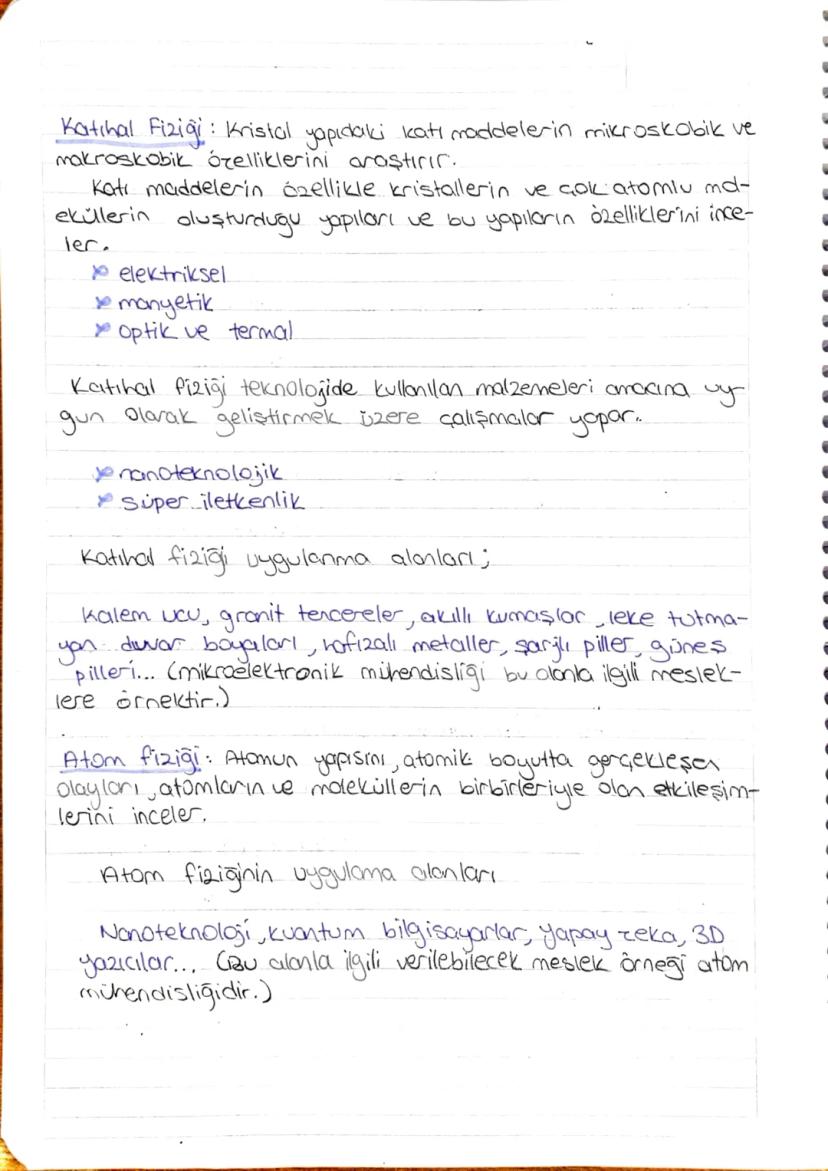 Katıhal Fiziği : Kristal yapıdaki katı maddelerin mikroskobik ve
makroskobik özelliklerini araştırır.
Katı maddelerin özellikle kristallerin ve çok atomlu mol-
eküllerin oluşturduğu yapıları ve bu yapıların özelliklerini ince-
ler.
elektriksel
manyetik
optik ve termal
Katıhal fiziği teknolojide kullanılan malzemeleri amacına uy-
gun olarak geliştirmek üzere çalışmalar yapar..
nanoteknolojik
süper iletkenlik
Katıhal fiziği uygulanma alanları ;
Kalem ucu, granit tencereler, akıllı kumaşlar, leke tutma-
yan duvar boyaları, hafızalı metaller, şarjlı piller, güneş
pilleri... (mikroelektronik mühendisliği bu alanla ilgili meslek-
lere örnektir.)
Atom fiziği : Atomun yapısını, atomik boyutta gerçekleşen
olayları, atomların ve moleküllerin birbirleriyle olan etkileşim-
lerini inceler.
Atom fiziğinin uygulama alanları
Nanoteknoloji, kuantum bilgisayarlar, yapay zeka, 3D
yazıcılar... (Bu alanla ilgili verilebilecek meslek örneği atom
mühendisliğidir.)